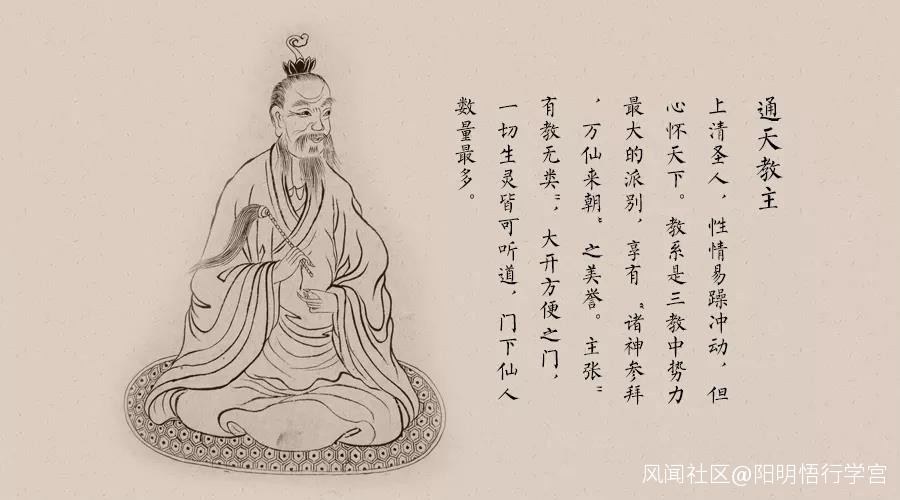 通天教主
上清圣人，性情易躁冲动，但
心怀天下。教系是三教中势力
最大的派别，享有“诸神参拜
，万仙来朝”之美誉。主张“
有教无类”，大开方便之门，
一切生灵皆可听道，门下仙人
数量最多。
风闻社区@阳明悟行学宫